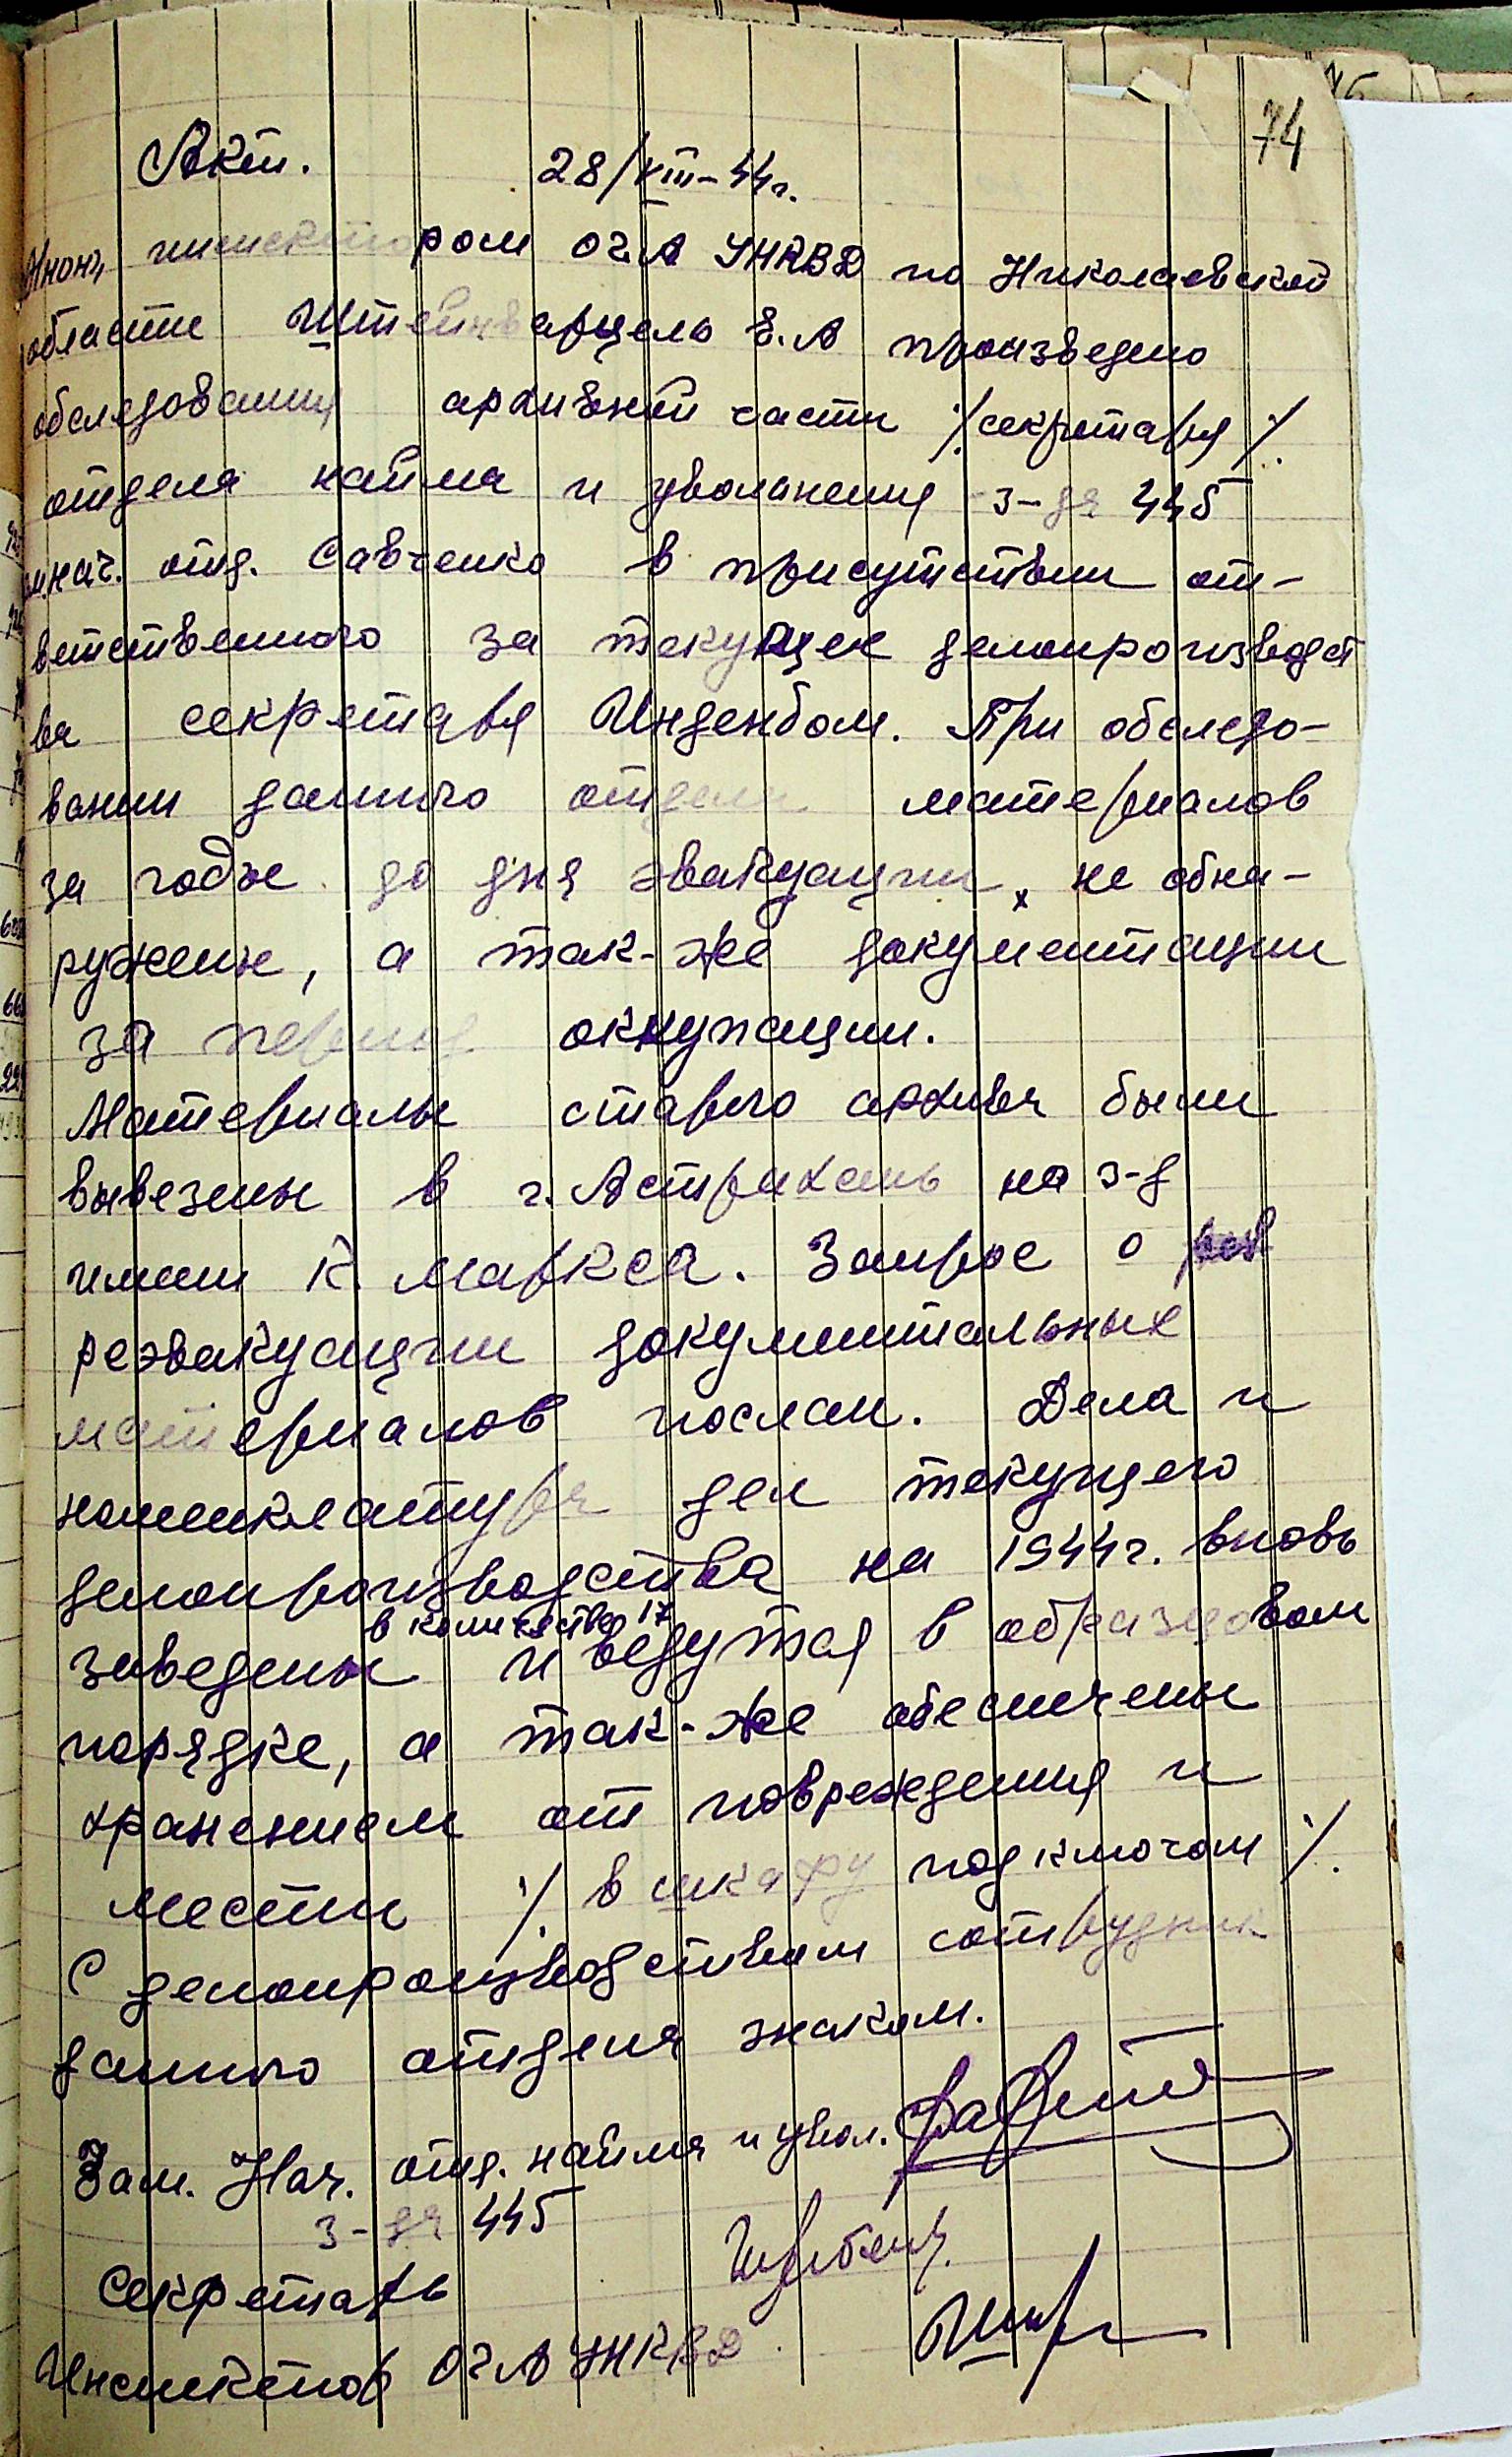 74
Акт. 28/VIII-44г.
Мною, инспектором ОГА УНКВД по Николаевской
области Штейнварцель Е.А произведено
обследования архивной части ⁒ секретаря ⁒
отдела найма и увольнения з-да 445
нач. отд. Савченко в присутствии от-
ветственного за текущее делопроизводст
ва секретаря Инденбом. При обследо-
вании данного отдела материалов
за годы до дня эвакуации, не обна-
ружены, а так-же документации
за период оккупации.
Материалы старого архива были
вывезены в г. Астрахань на з-д
имени К. Маркса. Запрос о
реэвакуации документальных
материалов послан. Дела и
номенклатура дел текущего
делопроизводства на 1944г. вновь
в количестве 17
заведены и ведутся в образцовом
порядке, а так-же обеспечены
хранением от повреждения и
мести ⁒ в шкафу под ключом ⁒
С делопроизводством сотрудник
данного отдела знаком.
Зам. Нач. отд. найма и увол.
з-да 445
Секретарь
Инспектор ОГА УНКВД